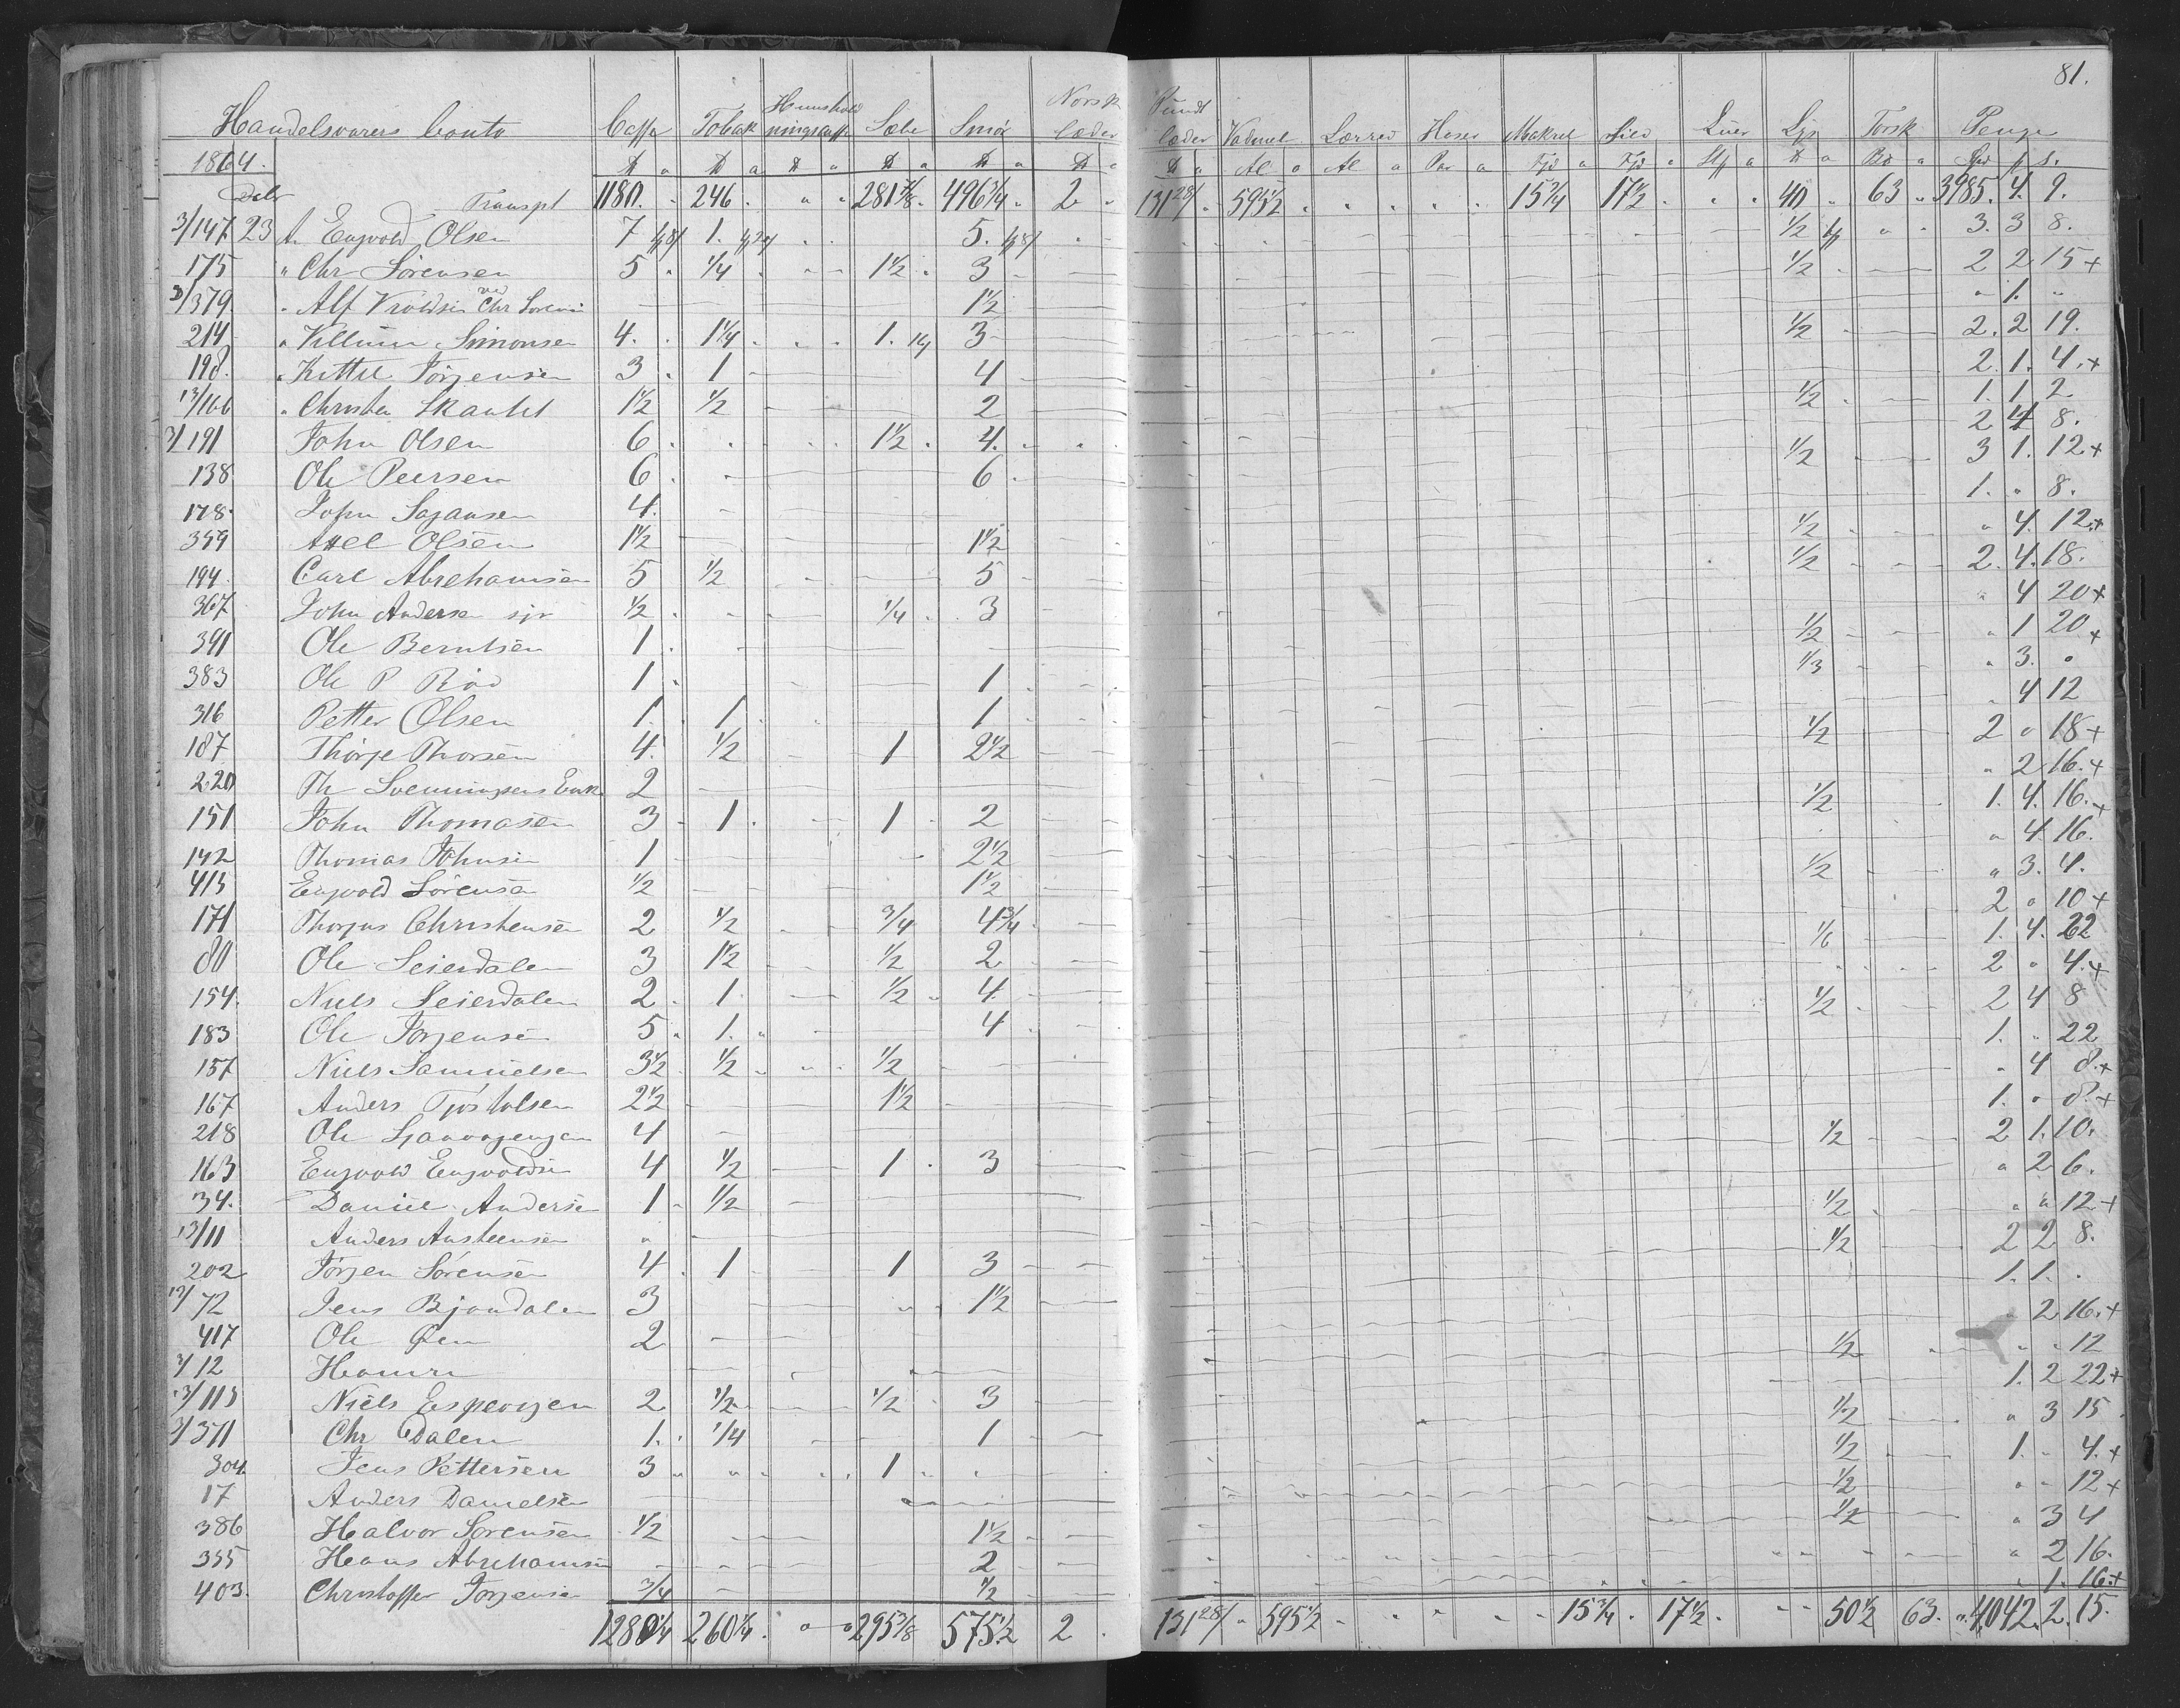 81.
Handelsvarers Conto Caffe Tobak Huusholdningscaffe Sæbe Smør Norsk læder Pundt læder Vadmel Lærred Hoser Makrel Sild Luer Lys Torsk Penge
1864.
Transpt 1180. 246. " " 281 7/8 496 3/4 2 131 28/ 595 1/2 15 3/4 17 1/2 40 63 3985. 4. 9.
3/147 23 A. Engvold Olsen 7 1. 5. 1/2 3. 3 8.
175 " Chr Sörensen 5 1/4 1 1/2 3 1/2 2 2 15 +
3/379 " Alf Vroldsen ved Chr Sorensen 1 1/2 " 1. "
214 " Villum Simonsen 4. 1 1/4 1. 3 1/2 2. 2 19.
198. " Kittil Törjensen 3 1 4 2. 1. 4. +
13/166 " Christen Skautet 1 1/2 1/2 2 1/2 1. 1 2.
3/191 John Olsen 6 1 1/2 4. 2 4 8.
138 Ole Peersen 6 6 1/2 3 1. 12 +
178. John Sagansen 4. 1. " 8.
359 Axel Olsen 1 1/2 1 1/2 1/2 " 4. 12. +
194. Carl Abrehamsen 5 1/2 5 1/2 2. 4. 18.
367 John Andersen sjr 1/2 1/4 3 " 4 20 +
391 Ole Berntsen 1 1/2 " 1 20 +
383 Ole P Röd 1 1 1/3 " 3. "
316 Petter Olsen 1. 1 1 " 4 12
187 Thörje Thorsen 4. 1/2 1 2 1/2 1/2 2 " 18 +
220 Th Svenningsens Enk 2 " 2 16. +
151 John Thomasen 3 1. 1 2 1/2 1. 4. 16. +
142 Thomas Johnsen 1 2 1/2 " 4. 16.
413 Engvold Sörensen 1/2 1 1/2 1/2 " 3. 4.
171 Thorjus Christensen 2 1/2 3/4 4 3/4 2 " 10 +
80 Ole Seierdalen 3 1 1/2 1/2 2 1/6 1. 4. 22
154. Niels Seierdalen 2 1 1/2 4 2 " 4. +
183 Ole Törjensen 5 1. 4 1/2 2 4 8
157 Niels Samuelsen 3 1/2 1/2 1/2 1. " 22
167 Anders Tjöstolsen 2 1/2 1 1/2 " 4 8. +
218 Ole 4 1. " 8. +
163 Engvold Engvoldsen 4 1/2 1 3 1/2 2 1. 10.
34. Daniel Andersen 1 1/2 " 2 6.
13/11 Anders Austeensen " 1/2 " " 12 +
202 Törjen Sörensen 4 1 1 3 1/2 2 2 8.
13/72 Jens Bjondalen 3 1 1/2 1. 1. "
417 Ole Öen 2 " 2 16. +
3/12 Hamre 1/2 " " 12
13/113 Niels Espersen 2 1/2 1/2 3 1. 2 22 +
3/371 Chr Dalen 1. 1/4 1 1/2 " 3 15
304. Jens Pettersen 3 " 1 1/2 1. " 4. +
17 Anders Danielsen 1/2 " " 12 +
386 Halvor Sorensen 1/2 1 1/2 1/2 " 3 4
355 Hans Abrehamsen 2 " 2 16.
403. Christoffer Torjensen 3/4 1/2 " 1. 16. +
1280 1/4 260 1/4 " " 295 3/8 575 1/2 2 131 28/ 595 1/2 15 3/4 17 1/2 50 1/2 63. 4042. 2. 15.